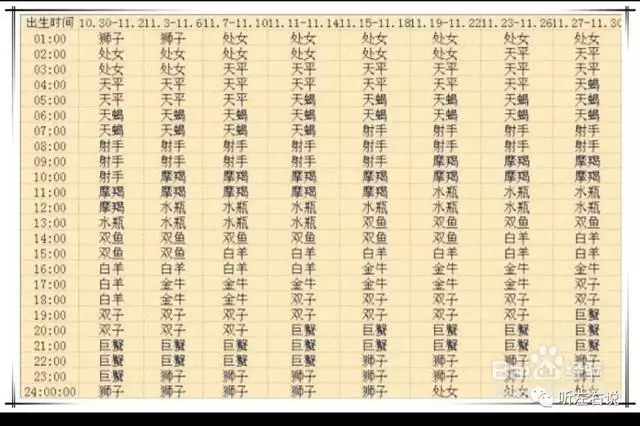 出生时间 10.30-11.2 11.3-11.6 11.7-11.10 11.11-11.14 11.15-11.18 11.19-11.22 11.23-11.26 11.27-11.30
01:00 狮子 狮子 处女 处女 处女 处女 处女 处女
02:00 处女 处女 处女 处女 处女 处女 天平 天平
03:00 处女 处女 天平 天平 天平 天平 天平 天平
04:00 天平 天平 天平 天平 天平 天平 天平 天蝎
05:00 天平 天平 天平 天蝎 天蝎 天蝎 天蝎 天蝎
06:00 天蝎 天蝎 天蝎 天蝎 天蝎 天蝎 天蝎 天蝎
07:00 天蝎 天蝎 天蝎 天蝎 射手 射手 射手 射手
08:00 射手 射手 射手 射手 射手 射手 射手 射手
09:00 射手 射手 射手 射手 射手 摩羯 摩羯 摩羯
10:00 射手 摩羯 摩羯 摩羯 摩羯 摩羯 摩羯 摩羯
11:00 摩羯 摩羯 摩羯 摩羯 摩羯 水瓶 水瓶 水瓶
12:00 摩羯 水瓶 水瓶 水瓶 水瓶 水瓶 水瓶 水瓶
13:00 水瓶 水瓶 水瓶 水瓶 双鱼 双鱼 双鱼 双鱼
14:00 双鱼 双鱼 双鱼 双鱼 双鱼 双鱼 白羊 白羊
15:00 双鱼 双鱼 白羊 白羊 白羊 白羊 白羊 白羊
16:00 白羊 白羊 白羊 白羊 金牛 金牛 金牛 金牛
17:00 白羊 金牛 金牛 金牛 金牛 金牛 金牛 双子
18:00 白羊 金牛 金牛 双子 双子 双子 双子 双子
19:00 双子 双子 双子 双子 双子 双子 双子 巨蟹
20:00 双子 双子 双子 巨蟹 巨蟹 巨蟹 巨蟹 巨蟹
21:00 巨蟹 巨蟹 巨蟹 巨蟹 巨蟹 巨蟹 巨蟹 巨蟹
22:00 巨蟹 巨蟹 巨蟹 巨蟹 狮子 狮子 狮子 狮子
23:00 巨蟹 狮子 狮子 狮子 狮子 狮子 狮子 狮子
24:00:00 狮子 狮子 狮子 狮子 狮子 处女 处女 处女
听左右说